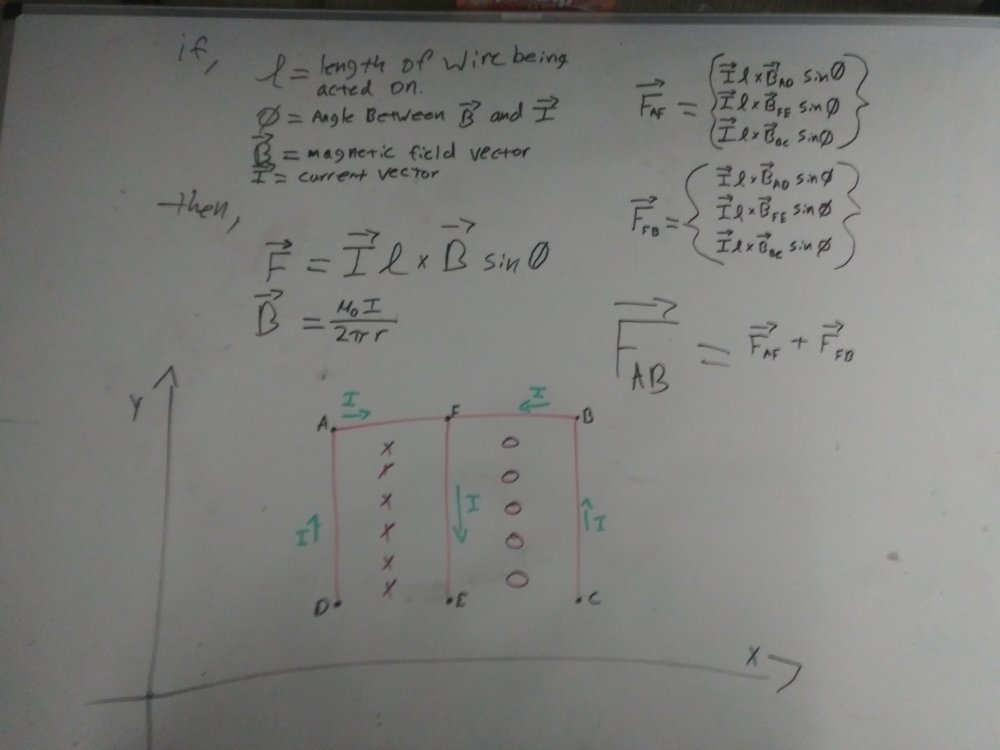 if,
l = length of wire being
acted on.
Ø = Angle Between B⃗ and I⃗
B⃗ = magnetic field vector
I⃗ = current vector
then,
F⃗ = I⃗ l × B⃗ sin Ø
B⃗ = μ₀ I / 2πr
F⃗_AF = { I⃗ l × B⃗_AD sin Ø
I⃗ l × B⃗_FE sin Ø
I⃗ l × B⃗_BC sin Ø }
F⃗_FB = { I⃗ l × B⃗_AD sin Ø
I⃗ l × B⃗_FE sin Ø
I⃗ l × B⃗_BC sin Ø }
F⃗_AB = F⃗_AF + F⃗_FB
Y
A I F I B
x o
x o
x o
x o
x o
x
I I I
D E C
X